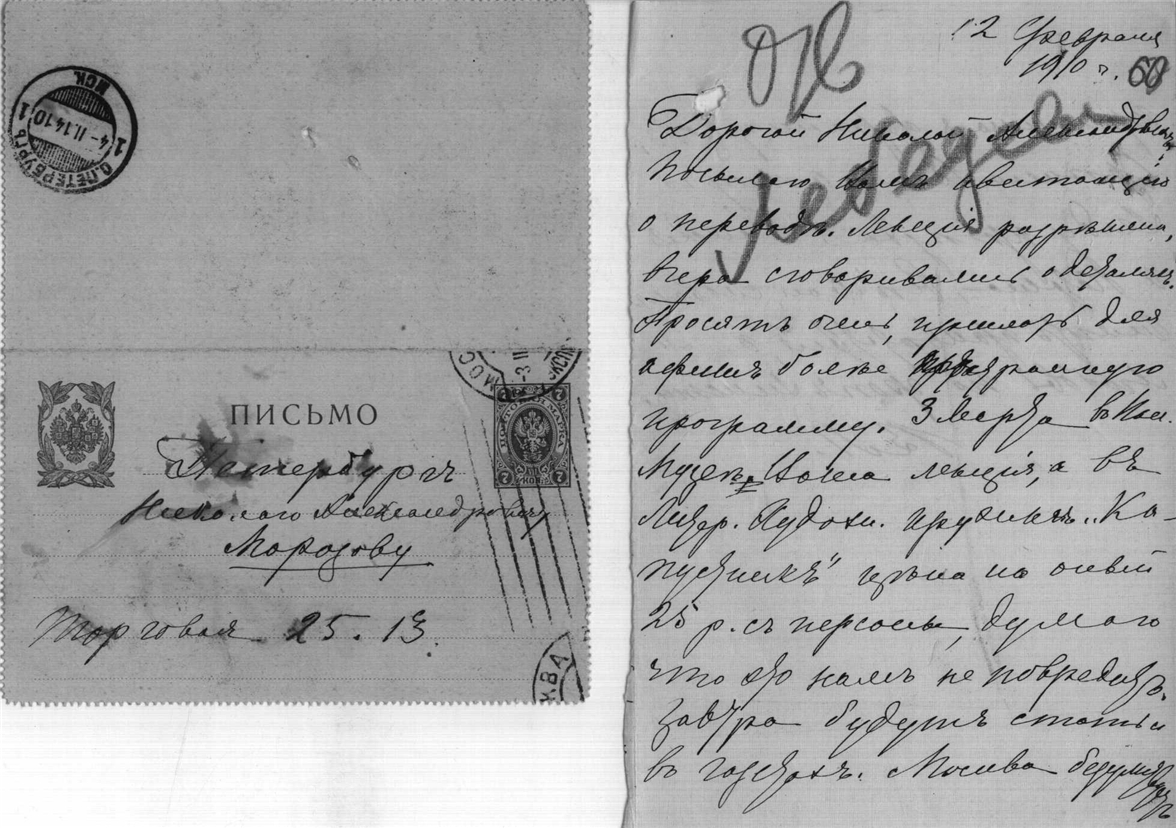 С.ПЕТЕРБУРГЪ
4-II.14 10
1
МОСКВА
3 II
ПИСЬМО
7
7
Петербургъ
Николаю Александровичу
Морозову
Торговая 25. 13
МОСКВА
12 Февраля
1910 г.
60
Отв
Лебедевъ
Дорогой Николай Александровичъ
Посылаю Вамъ квитанцію
о переводѣ. Лекція разрѣшена,
вчера сговаривались о деталяхъ.
Просятъ очень, прислать для
афишъ болѣе пространную
программу. 3 Марта въ Пол.
Музеѣ Ваша лекція, а въ
Литер. Худож. кружкѣ „Ка-
пустникъ" цѣна на оный
25 р. съ персоны, думаю
что это намъ не повредитъ.
завтра будутъ статьи
въ газетахъ. Москва